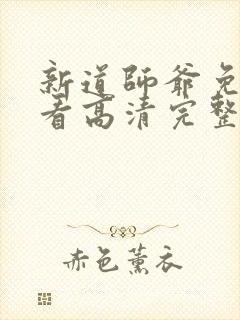 新道師爺免
看高清完整
赤色薰衣